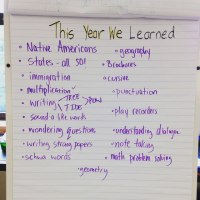 This Year We Learned
• Native Americans
• States - all 50!
• immigration
• multiplication
• writing
TREE
TIDE
• sound a like words
• wondering questions
• writing strong papers
• schwa words
• geography
• Brochures
• cursive
• punctuation
• play recorders
• understanding dialogue
• note taking
• math problem solving
• geometry